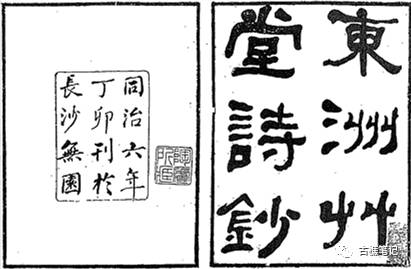 東洲艸
堂詩鈔
同治六年
丁卯刊於
長沙無園
古籍笔记